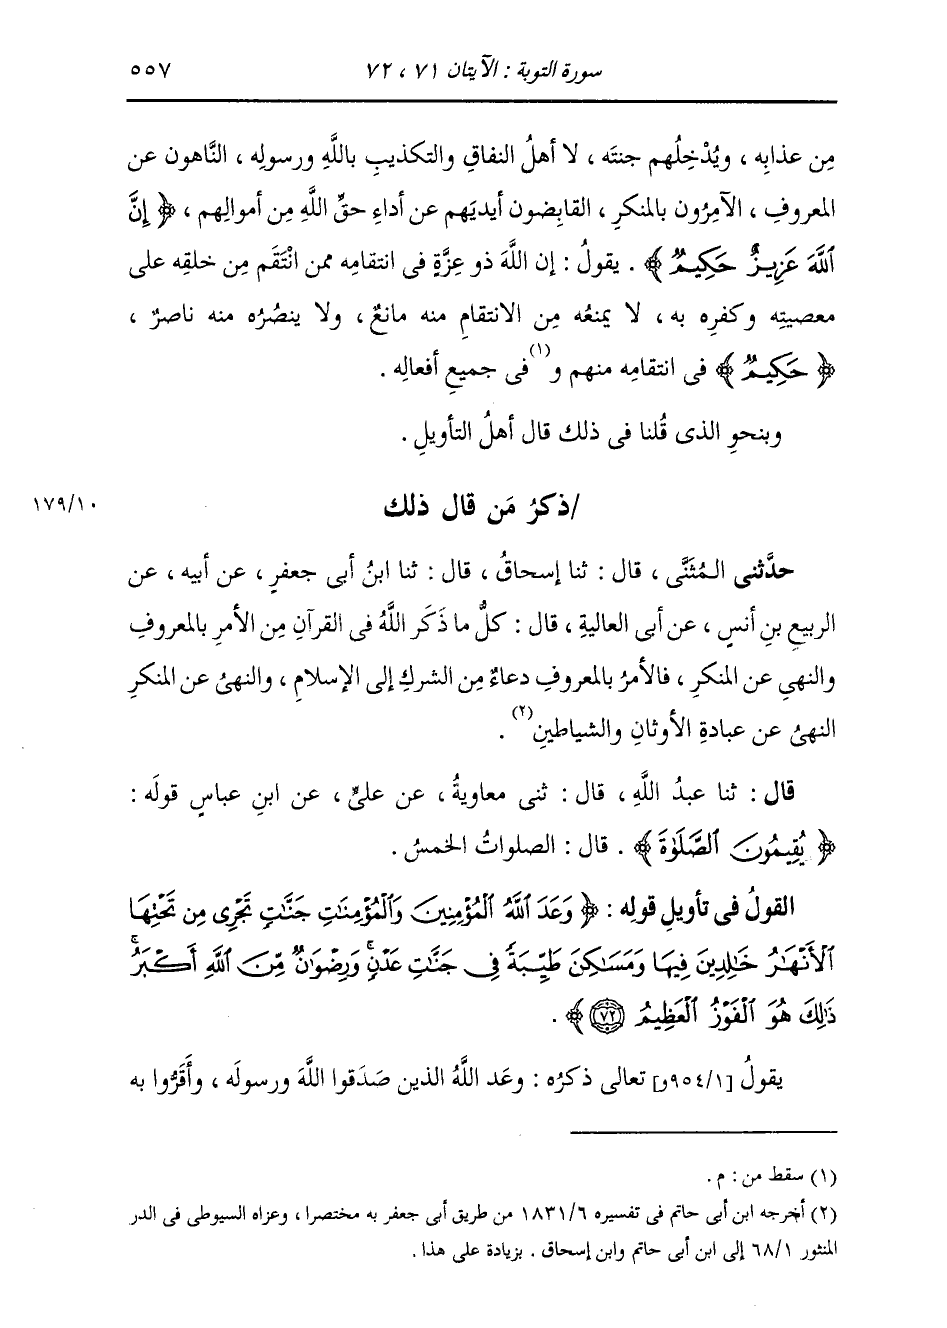 سورة التوبة : الآيتان ٧١ ، ٧٢ ٥٥٧
مِن عذابِه ، ويُدْخِلُهم جنتَه ، لا أهلُ النفاقِ والتكذيبِ باللَّهِ ورسولِه ، النَّاهون عن
المعروفِ ، الآمِرُون بالمنكرِ ، القابِضون أيديَهم عن أداءِ حقِّ اللَّهِ مِن أموالِهم ، ﴿ إِنَّ
ٱللَّهَ عَزِيزٌ حَكِيمٌ ﴾ . يقولُ : إن اللَّهَ ذو عِزَّةٍ فى انتقامِه ممن انْتَقَم مِن خلقِه على
معصيتِه وكفرِه به ، لا يمنعُه مِن الانتقامِ منه مانعٌ ، ولا ينصُرُه منه ناصرٌ ،
﴿ حَكِيمٌ ﴾ فى انتقامِه منهم و(١)فى جميعِ أفعالِه .
وبنحوِ الذى قُلنا فى ذلك قال أهلُ التأويلِ .
/ذكرُ مَن قال ذلك ١٧٩/١٠
حدَّثنى المُثَنَّى ، قال : ثنا إسحاقُ ، قال : ثنا ابنُ أبى جعفرٍ ، عن أبيه ، عن
الربيعِ بنِ أنسٍ ، عن أبى العاليةِ ، قال : كلُّ ما ذَكَر اللَّهُ فى القرآنِ مِن الأمرِ بالمعروفِ
والنهىِ عن المنكرِ ، فالأمرُ بالمعروفِ دعاءٌ مِن الشركِ إلى الإسلامِ ، والنهىُ عن المنكرِ
النهىُ عن عبادةِ الأوثانِ والشياطينِ(٢) .
قال : ثنا عبدُ اللَّهِ ، قال : ثنى معاويةُ ، عن علىٍّ ، عن ابنِ عباسٍ قولَه :
﴿ يُقِيمُونَ ٱلصَّلَوٰةَ ﴾ . قال : الصلواتُ الخمسُ .
القولُ فى تأويلِ قولِه : ﴿ وَعَدَ ٱللَّهُ ٱلْمُؤْمِنِينَ وَٱلْمُؤْمِنَٰتِ جَنَّٰتٍ تَجْرِى مِن تَحْتِهَا
ٱلْأَنْهَٰرُ خَٰلِدِينَ فِيهَا وَمَسَٰكِنَ طَيِّبَةً فِى جَنَّٰتِ عَدْنٍ ۚ وَرِضْوَٰنٌ مِّنَ ٱللَّهِ أَكْبَرُ ۚ
ذَٰلِكَ هُوَ ٱلْفَوْزُ ٱلْعَظِيمُ ٧٢ ﴾ .
يقولُ [٩٥٤/١و] تعالى ذكرُه : وعَد اللَّهُ الذين صَدَقوا اللَّهَ ورسولَه ، وأَقَرُّوا به
(١) سقط من : م .
(٢) أخرجه ابن أبى حاتم فى تفسيره ١٨٣١/٦ من طريق أبى جعفر به مختصرا ، وعزاه السيوطى فى الدر
المنثور ٦٨/١ إلى ابن أبى حاتم وابن إسحاق . بزيادة على هذا .